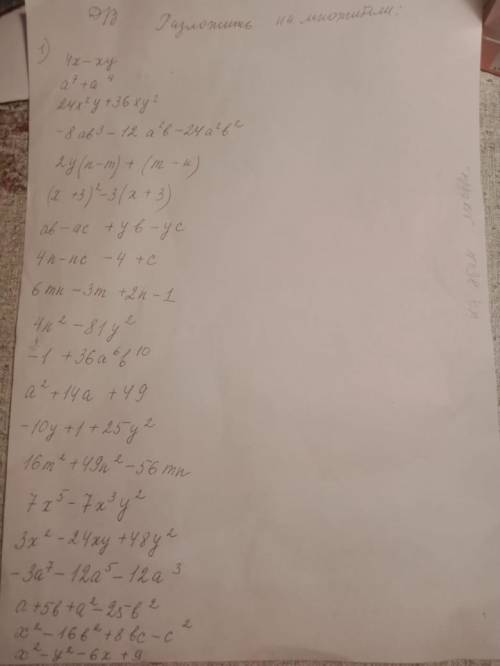 ДЗ Разложить на множители:
1)
4x-xy
a⁷+a⁴
24x²y+36xy²
-8ab³-12a²b-24a²b²
2y(n-m)+(m-n)
(x+3)²-3(x+3)
ab-ac+yb-yc
4n-nc-4+c
6mn-3m+2n-1
4n²-81y²
-1+36a⁶b¹⁰
a²+14a+49
-10y+1+25y²
16m²+49n²-56mn
7x⁵-7x³y²
3x²-24xy+48y²
-3a⁷-12a⁵-12a³
a+5b+a²-25b²
x²-16b²+8bc-c²
x²-y²-6x+9